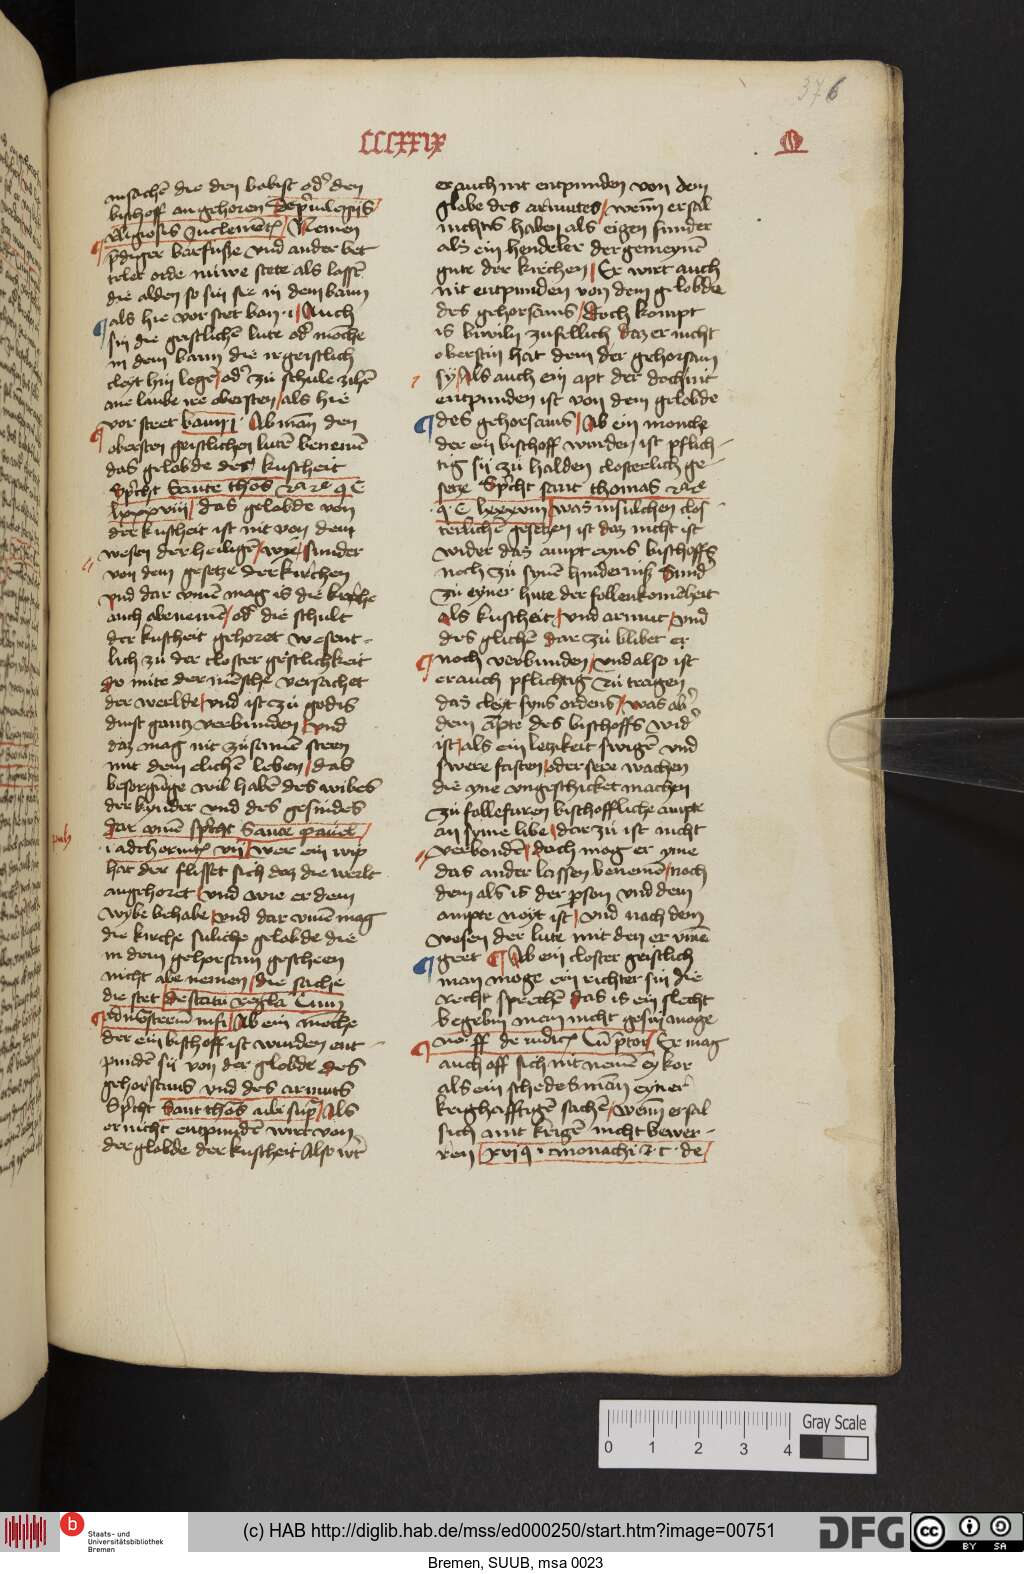 376
CCCXXIX
M
in sachē die den babist od' den
bischoff an gehoren De p'uilegijs
religiosis In clemēt' Nemen
p̄diger barfusse vnd ander bet
teler orde nuwe stete als lassē
die alden so sin sie in dem bann
als hie vor stet ban i Auch
sin die geistlichē lute od' mōche
in dem bann die ir geistlich
cleyt hin legē od' zu schule zihē
ane laube ire obersten als hie
vor steet bann i Ab man den
obersten geistlichen lutē benemē
das gelobde der kuscheit
Sp'cht Sante thos
lxxxviij das gelobde von
der kuscheit ist nit von dem
wesen der heiligē sunder
von dem gesetze der kirchen
vnd dar vmē mag is die kirche
auch abenemē od' die schult
der kuscheit gehoret wesent-
lich zu der closter geistlichkeit
do mite der mēsche versachet
der werlde vnd ist zu godis
dinst gantz verbunden vnd
daz mag nit zusamē steen
mit dem elichē leben das
besorgūge wil habē des wibes
der kynder vnd des gesindes
dar vmē sp'cht Sante pauel
pauls
i ad chorint' vij wer ein wip
hat der flisset sich daz die werlt
angehoret vnd wie er dem
wybe behabe vnd dar vmē mag
die kirche suliche glabde die
in dem gehorsam gescheen
nicht abe nemen die sache
die stet de statu regla Cum
ad mōsteriū in fi Ab ein mōche
der ein bischoff ist wurden ent-
pundē sij von der globde des
gehorsams vnd des armuts
Sp'cht Sant thos vbi sup' Als
er nicht entpundē wirt von
der globde der kuscheit Also w't
er auch nit entpunden von dem
globe des armutes wenn er sal
nichts haben als eigen sunder
als ein hendeler der gemeynē
gute der kirchen Er wirt auch
nit entpunden von dem gelobde
des gehorsams Doch kompt
is biwiln zufellich daz er nicht
oberstin hat dem der gehorsam
sij Als auch ein apt der doch nit
entpunden ist von dem gelobde
des gehorsams Ab ein monche
der ein bischoff wurden ist pflich-
tig sij zu halden closterlich ge-
setze Sp'cht sant thomas
q C lxxxviij was in sulchen clos
terlichē gesetzen ist daz nicht ist
wider daz ampt eyns bischoffs
noch zu synē hinderniß Sund'
zu eyner hute der follenkomēheit
als kuscheit vnd armut vnd
des glichē dar zu blibet er
noch verbunden vnd also ist
er auch pflichtig zu tragen
das cleyt syns ordens was ab'
dem ampte des bischoffs wid'
ist als ein letzikeit swigē vnd
swere fasten oder sere wachen
die yne vngeschicket machen
zu follefuren bischoffliche ampte
an syme libe dar zu ist nicht
verbondē doch mog er yme
das ander lassen benemē noch
dem als is der p̄son vnd dem
ampte noyt ist vnd nach dem
wesen der lute mit den er vmē
geet Ab ein closter geistlich
man moge ein richter sin die
recht sprechē das is ein slecht
begebin men nicht gesin moge
de iudic' Cū p̄tor Er mag
auch off sich nit nemē ey kor
als ein schedesman eyner
kryghafftigē sachē wenn er sal
sich mit krigē nicht bewer-
ren xvi q i monachi de
0 1 2 3 4
Gray Scale
b Staats- und
Universitätsbibliothek
Bremen
(c) HAB http://diglib.hab.de/mss/ed000250/start.htm?image=00751
DFG
cc BY SA
Bremen, SUUB, msa 0023